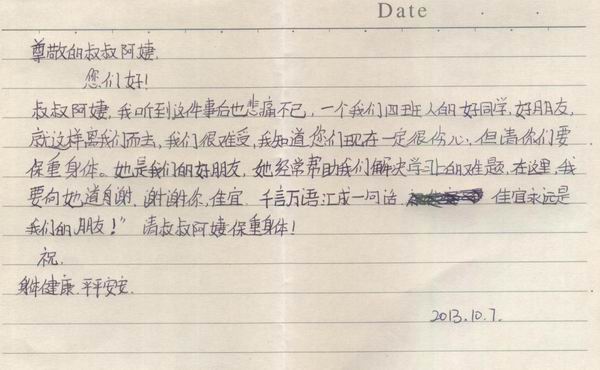 Date
尊敬的叔叔阿姨,
您们好!
叔叔阿姨,我听到这件事后也悲痛不已,一个我们四班人的好同学,好朋友,
就这样离我们而去,我们很难受,我知道您们现在一定很伤心,但请你们要
保重身体。她是我们的好朋友,她经常帮助我们解决学习上的难题,在这里,我
要向她道身谢,谢谢你,佳宜.千言万语汇成一句话 佳宜永远是
我们的朋友!”请叔叔阿姨保重身体!
祝,
身体健康.平平安安.
2013.10.7.